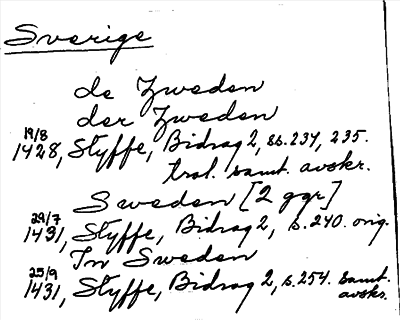 Sverige
de Zweden
der Zweden
19/8
1428, Styffe, Bidrag 2, ss. 234, 235.
trol. samt. avskr.
Sweden [2 ggr]
29/7
1431, Styffe, Bidrag 2, s. 240. orig.
In Sweden
25/9
1431, Styffe, Bidrag 2, s. 254. samt.
avskr.